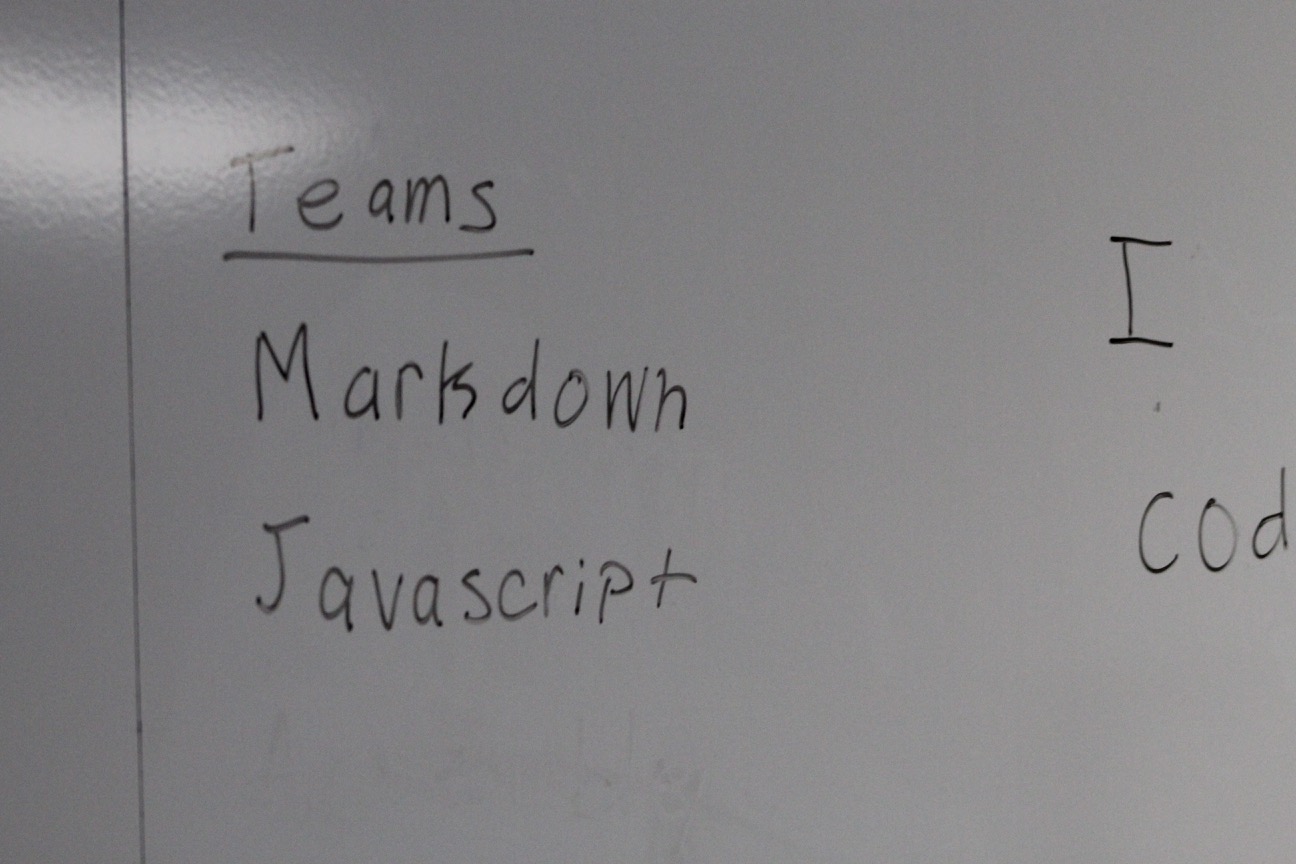 Teams
Markdown
Javascript
I
cod